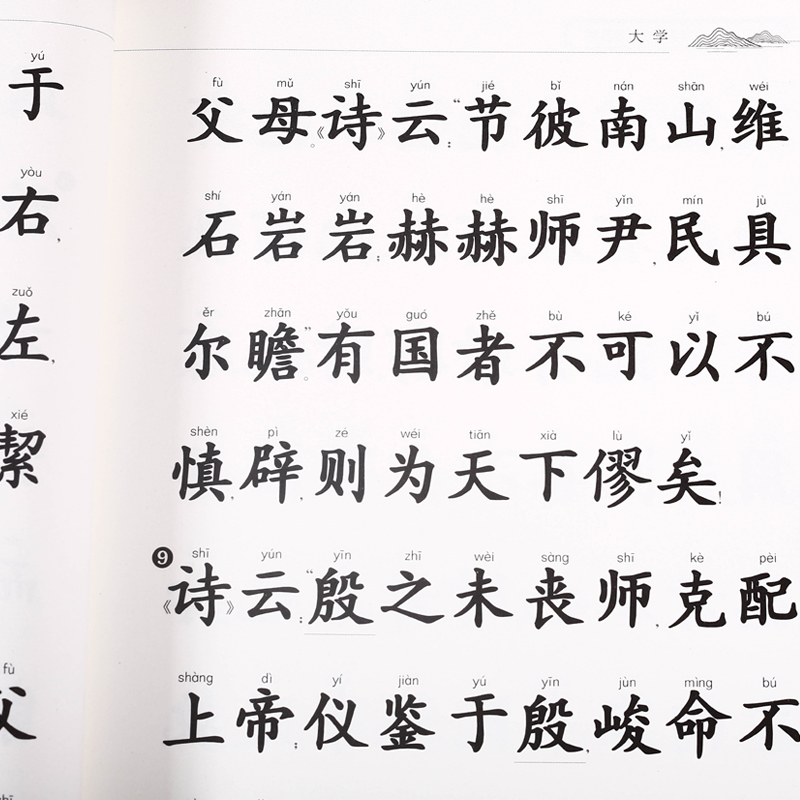 大学
yú
于
yòu
右，
zuǒ
左，
xié
絜
fù
父
fù mǔ shī yún jié bǐ nán shān wéi
父母。《诗》云：“节彼南山，维
shí yán yán hè hè shī yǐn mín jù
石岩岩；赫赫师尹，民具
ěr zhān yǒu guó zhě bù kě yǐ bú
尔瞻。”有国者不可以不
shèn pì zé wéi tiān xià lù yǐ
慎，辟，则为天下僇矣！
❾ shī yún yīn zhī wèi sàng shī kè pèi
《诗》云：“殷之未丧师，克配
shàng dì yí jiàn yú yīn jùn mìng bú
上帝；仪鉴于殷，峻命不